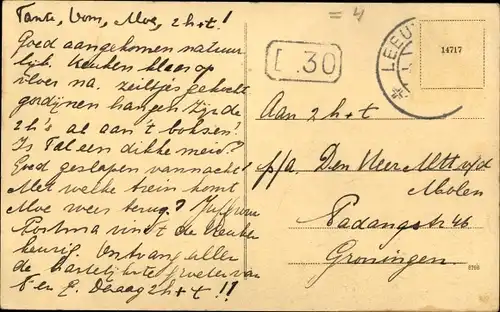 Tante, Oom, Moe, 2 h + t!
Goed aangekomen natuur-
lijk. Keuken klaar op
vloer na. zeiltjes gekocht
gordijnen hangen. Zijn de
2 h's al aan 't boksen?
Is Tal een dikke meid?
Goed geslapen vannacht?
Met welke trein komt
Moe weer terug? Juffrouw
Postma vindt de keuken
keurig. Ontvang allen
de hartelijkste groeten van
en Daaag 2 h + t!!
= 4
[ .30 ]
LEEU
14717
Aan 2 h + t
p/a Den Heer v/d
Molen
Padangstr 46
Groningen.